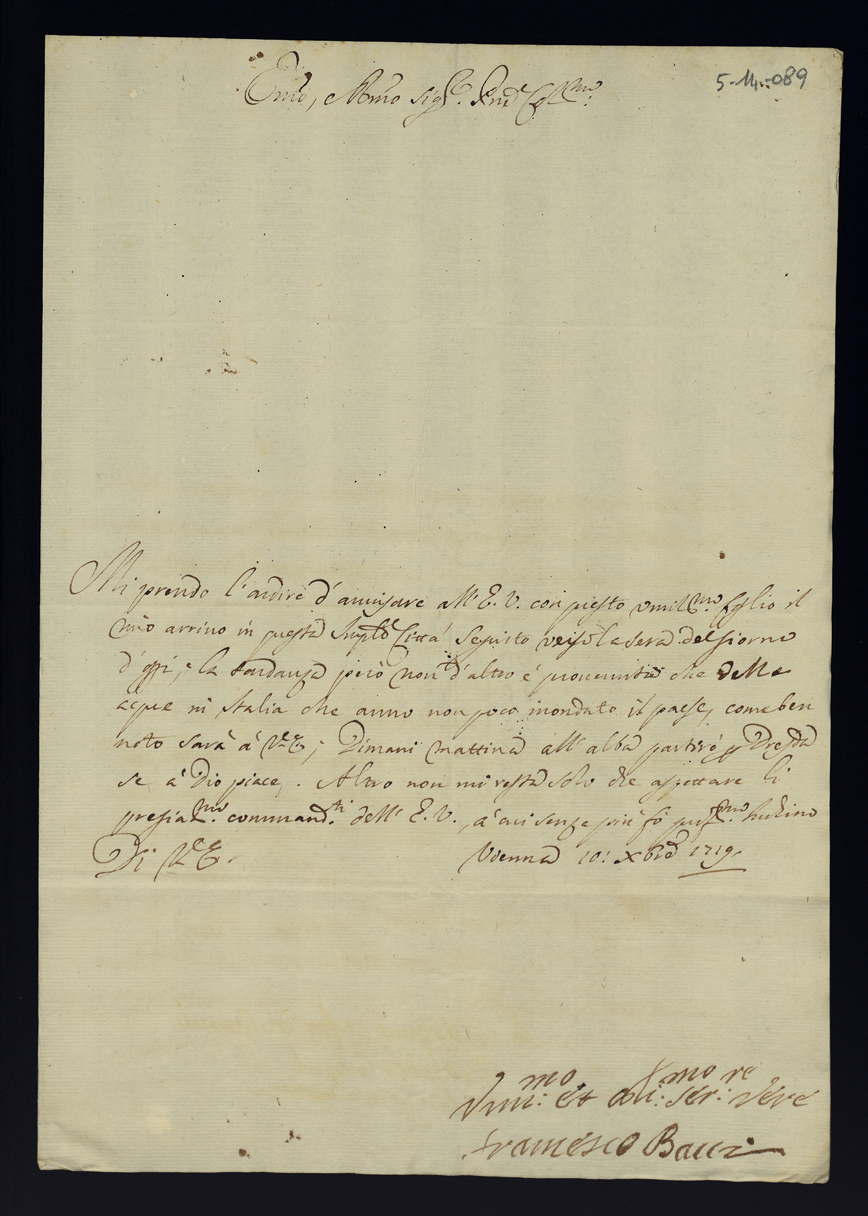 5-14-089
Em̃o, Rmo Sigr. Prñe Colmo:
Mi prendo l'ardire d'avvisare all' E. V. con questo umilmo foglio il
mio arrivo in questa Imple Città seguito verso la sera del giorno
d'oggi, la tardanza però non d'altro é provenuta che delle
acque in Italia che anno non poco inondato il paese, come ben
noto sarà á V. E; Dimani mattina all' alba partiró p Dresda
se á Dio piace. Altro non mi resta solo che aspettare li
pregiatmi commandti dell' E. V., á cui
Di V. E.
Vienna 10: Xbre 1719.
Vmimo: et obl:mo ser:re
Francesco Bacci